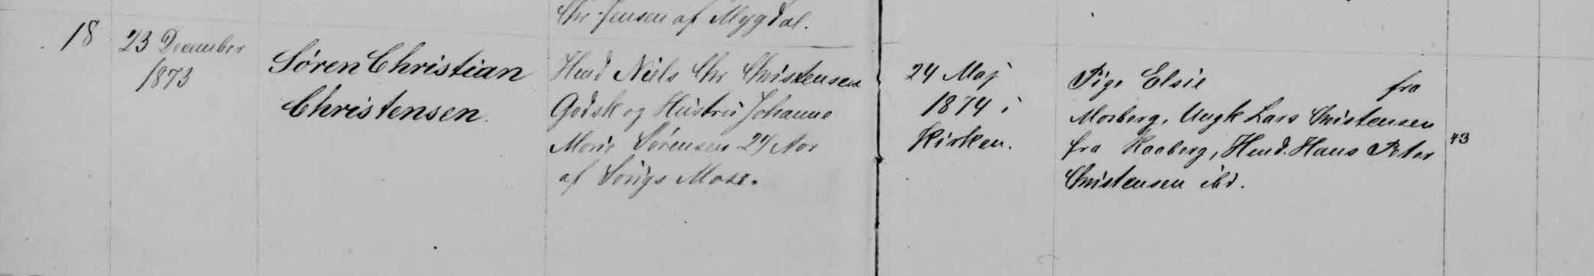 Chr. Jensen af Mygdal.
18
23 December
1873
Søren Christian
Christensen.
Hmd Niels Chr Christensen
Godsk og Hustru Johanne
Marie Sørensen 27 Aar
af Sørigs Mose.
24 Maj
1874 i
Kirken.
Pige Elsie fra
Mosberg, Ungk Lars Christensen
fra Raaberg, Hmd. Hans Peter
Christensen ibd.
43